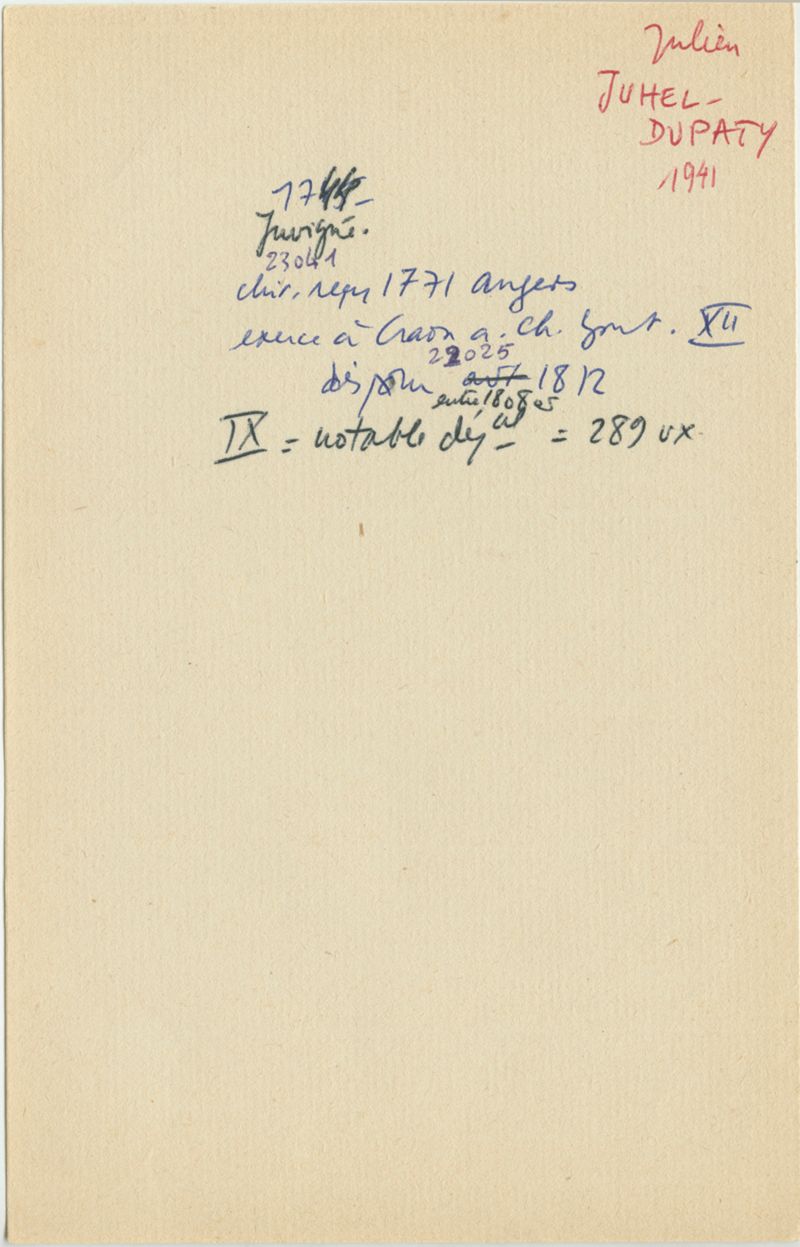 Julien
JUHEL-
DUPATY
1941
1744-
Juvigné.
23041
chir. reçu 1771 Angers
exerce à Craon a. Ch. Gont. XII
22025
1812
entre 1808 et
IX = notable dép al = 289 vx